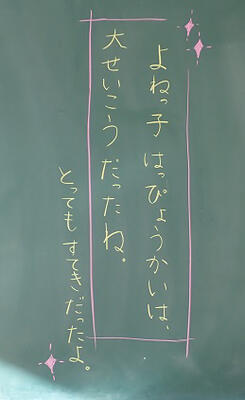 よねっ子 はっぴょうかいは、
大せいこう だったね。
とっても すてきだったよ。